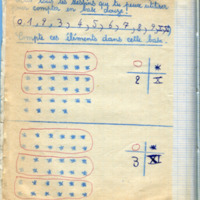 tous les dessins que tu peux utiliser
compter en base douze!
0, 1, 2, 3, 4, 5, 6, 7, 8, 9,
Compte ces éléments dans cette base.
2 X
3 XI